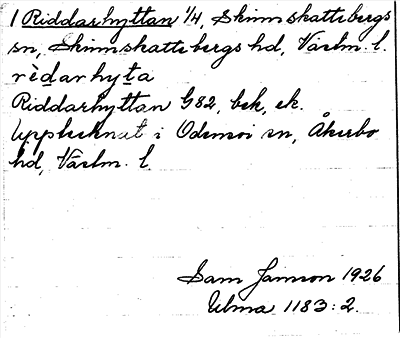 1 Riddarhyttan 1/4, Skinnskattebergs
sn, Skinnskattebergs hd, Västm. l.
rèdarhyta
Riddarhyttan G82, bek, ek.
Upptecknat i Odensvi sn, Åkerbo
hd, Västm. l.
Sam Jansson 1926
Ulma 1183:2.